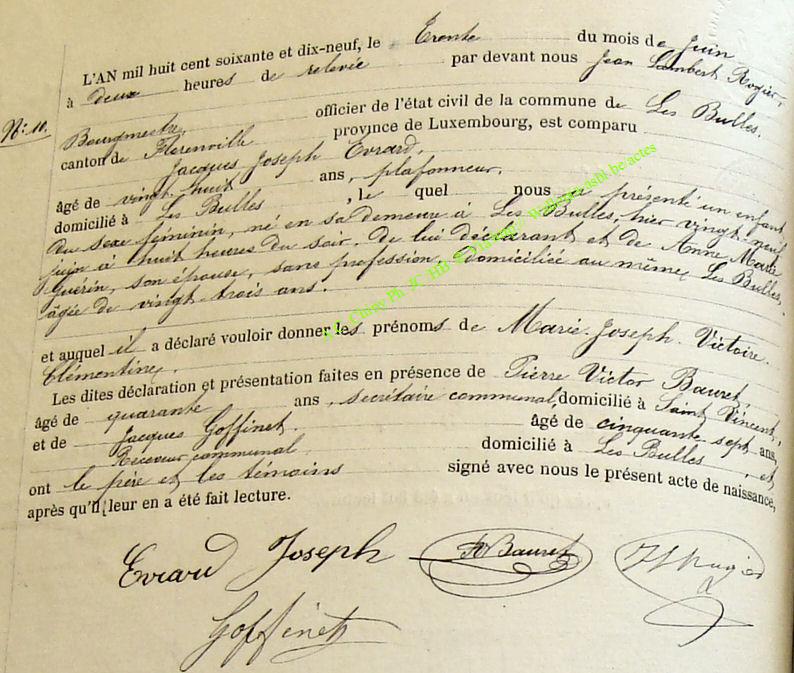 L'AN mil huit cent soixante et dix-neuf, le Trente du mois de Juin
à deux heures de relevée par devant nous Jean Lambert Rogier,
N°: 10.
Bourgmestre, officier de l'état civil de la commune de Les Bulles.
canton de Florenville province de Luxembourg, est comparu
Jacques Joseph Evrard,
âgé de vingt huit ans, plafonneur.
domicilié à Les Bulles, le quel nous a présenté un enfant
du sexe féminin, né en sa demeure à Les Bulles, hier vingt-neuf
juin à huit heures du soir. De lui déclarant et de Anne Marie
Guérin, son épouse, sans profession, domiciliée au même Les Bulles,
âgée de vingt-trois ans.
et auquel il a déclaré vouloir donner les prénoms de Marie-Joseph-Victoire.
Clémentine.
Les dites déclaration et présentation faites en présence de Pierre Victor Bauret,
âgé de quarante ans, secrétaire communal, domicilié à Saint Vincent,
et de Jacques Goffinet. âgé de cinquante sept ans,
Receveur communal domicilié à Les Bulles, et
ont le père et les témoins signé avec nous le présent acte de naissance,
après qu'il leur en a été fait lecture.
Evrard Joseph Bauret
Goffinet